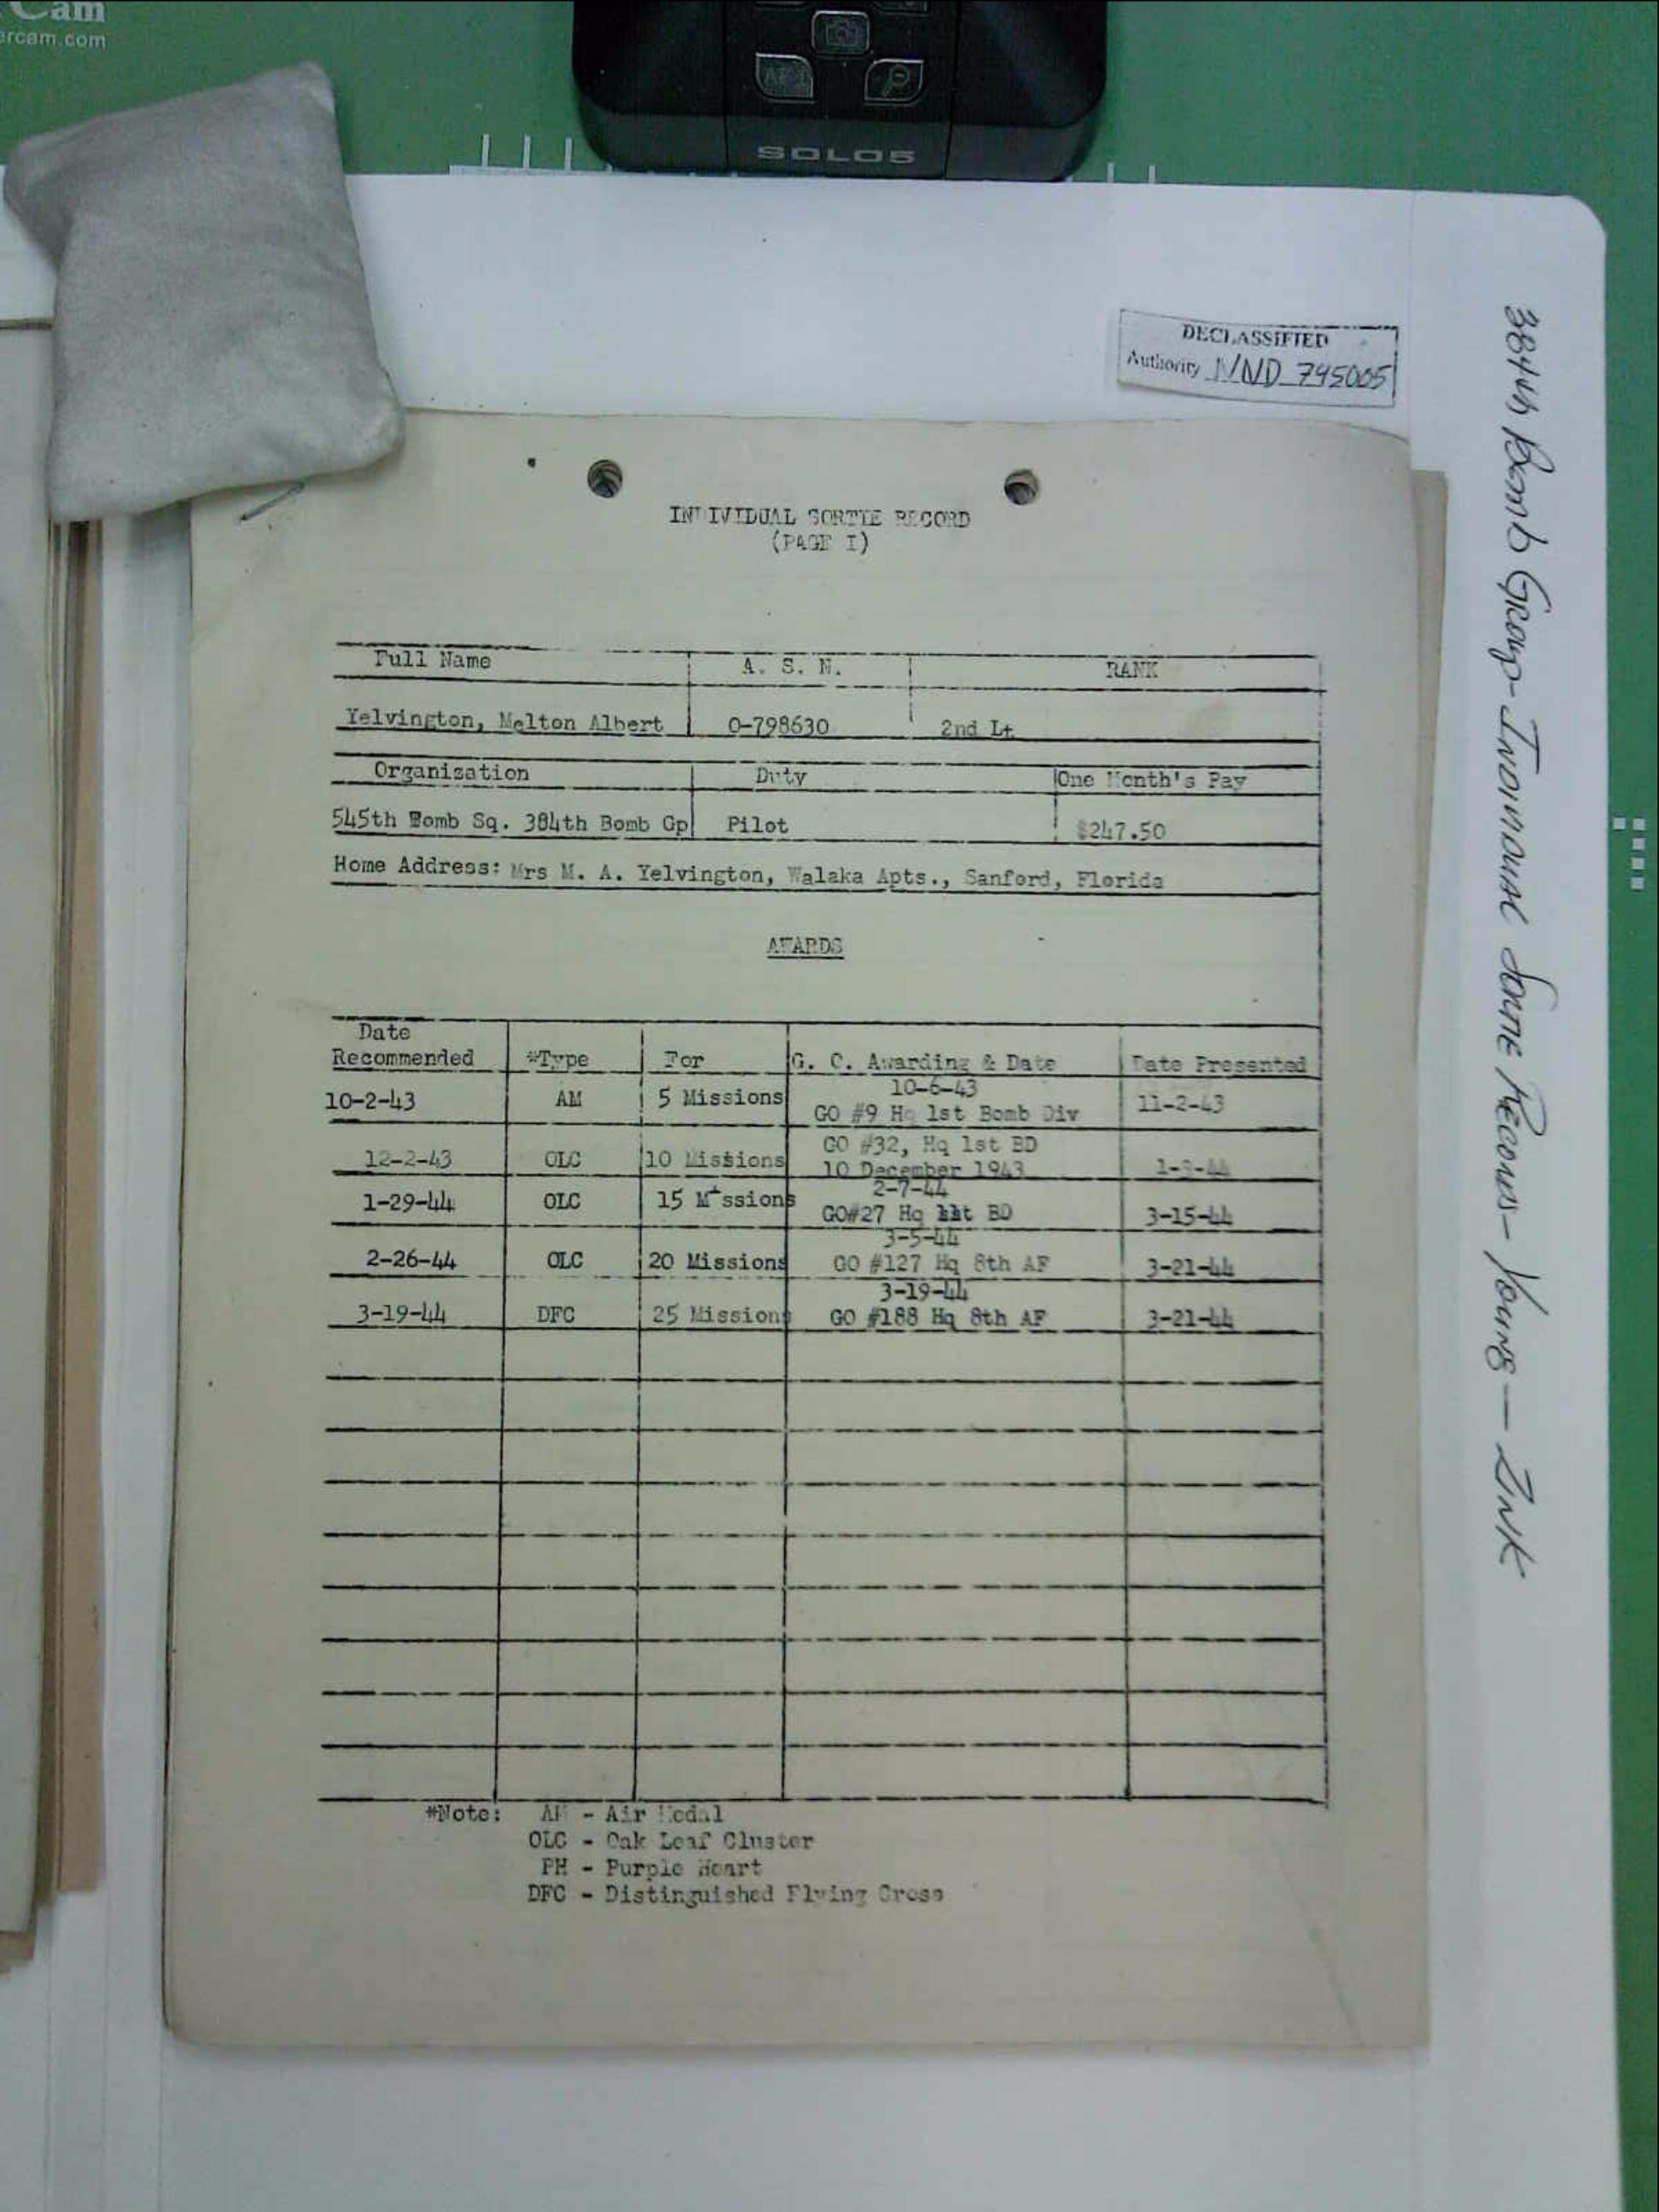 Cam
ercam.com
SOLO5
DECLASSIFIED
Authority NND 745005
384th Bomb Group - Individual Sortie Records - Young - Zink
INDIVIDUAL SORTIE RECORD
(PAGE I)
Full Name A. S. N. RANK
Yelvington, Melton Albert 0-798630 2nd Lt
Organization Duty One Month's Pay
545th Bomb Sq. 384th Bomb Gp Pilot $247.50
Home Address: Mrs M. A. Yelvington, Walaka Apts., Sanford, Florida
AWARDS
Date
Recommended *Type For G. C. Awarding & Date Date Presented
10-6-43
10-2-43 AM 5 Missions GO #9 Hq 1st Bomb Div 11-2-43
GO #32, Hq 1st BD
12-2-43 OLC 10 Missions 10 December 1943
2-7-44
1-29-44 OLC 15 Missions GO#27 Hq BD 3-15-44
3-5-44
2-26-44 OLC 20 Missions GO #127 Hq 8th AF 3-21-44
3-19-44
3-19-44 DFC 25 Missions GO #188 Hq 8th AF 3-21-44
*Note: AM - Air Medal
OLC - Oak Leaf Cluster
PH - Purple Heart
DFC - Distinguished Flying Cross